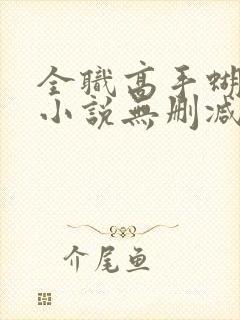 全職高手蝴
小說無刪減
介尾鱼